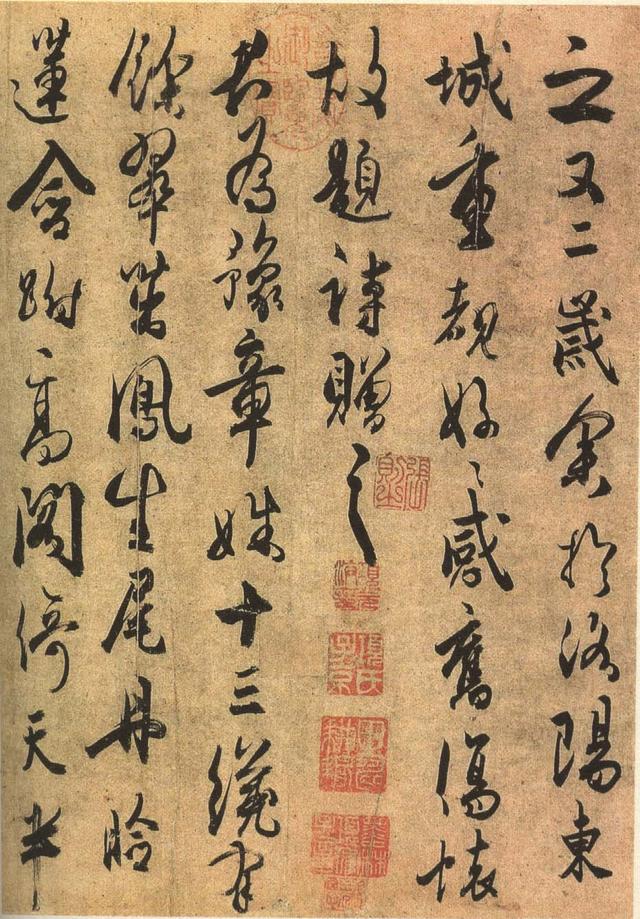 之又二歲余於洛陽東
城重覩好〻感舊傷懷
故題詩贈之
君為豫章姝十三纔有
餘翠茁鳳生尾丹臉
蓮含跗高閣倚天半
項氏子京